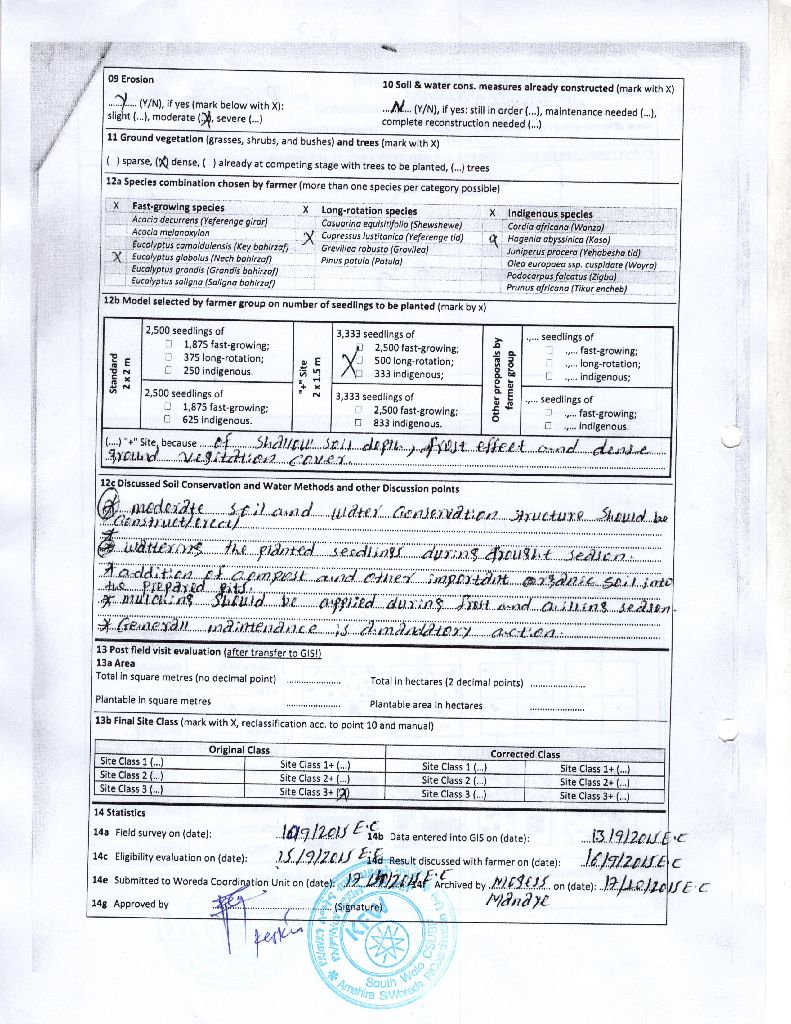 09 Erosion
10 Soil & water cons. measures already constructed (mark with X)
...Y... (Y/N), if yes (mark below with X):
...N... (Y/N), if yes: still in order (...), maintenance needed (...),
slight (...), moderate (X), severe (...)
complete reconstruction needed (...)
11 Ground vegetation (grasses, shrubs, and bushes) and trees (mark with X)
( ) sparse, (X) dense, ( ) already at competing stage with trees to be planted, (...) trees
12a Species combination chosen by farmer (more than one species per category possible)
X Fast-growing species
Acacia decurrens (Yeferenge girar)
Acacia melanoxylon
Eucalyptus camaldulensis (Key bahirzaf)
X Eucalyptus globolus (Nech bahirzaf)
Eucalyptus grandis (Grandis bahirzaf)
Eucalyptus saligna (Saligna bahirzaf)
X Long-rotation species
Casuarina equisitifolia (Shewshewe)
X Cupressus lustitanica (Yeferenge tid)
Grevillea robusta (Gravilea)
Pinus patula (Patula)
X Indigenous species
Cordia africana (Wanza)
Hagenia abyssinica (Koso)
Juniperus procera (Yehabesha tid)
Olea europaea ssp. cuspidate (Wayra)
Podocarpus falcatus (Zigba)
Prunus africana (Tikur encheb)
12b Model selected by farmer group on number of seedlings to be planted (mark by x)
Standard
2 x 2 m
2,500 seedlings of
1,875 fast-growing;
375 long-rotation;
250 indigenous.
2,500 seedlings of
1,875 fast-growing;
625 indigenous.
"+" Site
2 x 1.5 m
3,333 seedlings of
2,500 fast-growing;
X 500 long-rotation;
333 indigenous;
3,333 seedlings of
2,500 fast-growing;
833 indigenous.
Other proposals by
farmer group
.,... seedlings of
.,... fast-growing;
.,... long-rotation;
.,... indigenous;
.,... seedlings of
.,... fast-growing;
.,... indigenous.
(....) "+" Site, because of shallow soil depth, frost effect and dense
ground vegitation cover.
12c Discussed Soil Conservation and Water Methods and other Discussion points
* moderate soil and water Conservation structure should be
Construct/erect/
* wattering the planted seedlings during drought season.
* addition of compost and other important organic soil into
the prepared pits.
* mulching should be applied during frost and season
* Generall maintenance is a mandatory action.
13 Post field visit evaluation (after transfer to GIS!)
13a Area
Total in square metres (no decimal point) ..................
Total in hectares (2 decimal points) ..................
Plantable in square metres ..................
Plantable area in hectares ..................
13b Final Site Class (mark with X, reclassification acc. to point 10 and manual)
Original Class
Corrected Class
Site Class 1 (...) Site Class 1+ (...) Site Class 1 (...) Site Class 1+ (...)
Site Class 2 (...) Site Class 2+ (...) Site Class 2 (...) Site Class 2+ (...)
Site Class 3 (...) Site Class 3+ (X) Site Class 3 (...) Site Class 3+ (...)
14 Statistics
14a Field survey on (date): 10/9/2015 E.C
14b Data entered into GIS on (date): 13/9/2015 E.C
14c Eligibility evaluation on (date): 15/9/2015 E.C
14d Result discussed with farmer on (date): 16/9/2015 E.C
14e Submitted to Woreda Coordination Unit on (date):
14f Archived by on (date): 12/10/2015 E.C
14g Approved by (Signature)
KFW
South Wolo CSUBS